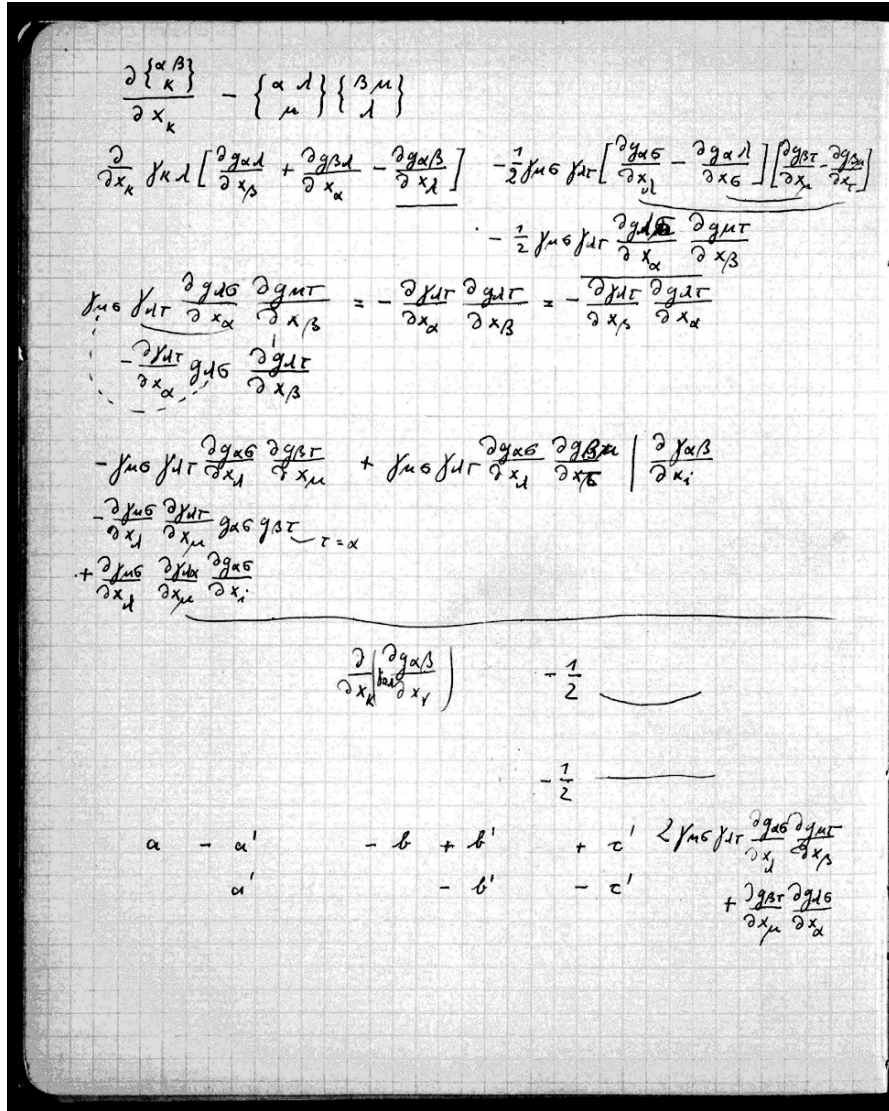 ∂{αβ κ}/∂x_κ − {αλ μ}{βμ λ}
∂/∂x_κ γ_κλ[∂g_αλ/∂x_β + ∂g_βλ/∂x_α − ∂g_αβ/∂x_λ] −1/2 γ_μσ γ_λτ[∂g_ασ/∂x_λ − ∂g_αλ/∂x_σ][∂g_βτ/∂x_μ − ∂g_βμ/∂x_τ]
− 1/2 γ_μσ γ_λτ ∂g_λσ/∂x_α ∂g_μτ/∂x_β
γ_μσ γ_λτ ∂g_λσ/∂x_α ∂g_μτ/∂x_β = − ∂γ_λτ/∂x_α ∂g_λτ/∂x_β = − ∂γ_λτ/∂x_β ∂g_λτ/∂x_α
− ∂γ_λτ/∂x_α g_λσ ∂g_λτ/∂x_β
− γ_μσ γ_λτ ∂g_ασ/∂x_λ ∂g_βτ/∂x_μ + γ_μσ γ_λτ ∂g_ασ/∂x_λ ∂g_βμ/∂x_τ | ∂γ_αβ/∂x_i
− ∂γ_μσ/∂x_λ ∂γ_λτ/∂x_μ g_ασ g_βτ τ=α
+ ∂γ_μσ/∂x_λ ∂γ_λα/∂x_μ ∂g_ασ/∂x_i
∂/∂x_κ(γ_κλ ∂g_αβ/∂x_γ) − 1/2
− 1/2
a − a' − b + b' + τ' 2 γ_μσ γ_λτ ∂g_ασ/∂x_λ ∂g_μτ/∂x_β
a' − b' − τ' + ∂g_βτ/∂x_μ ∂g_λσ/∂x_α